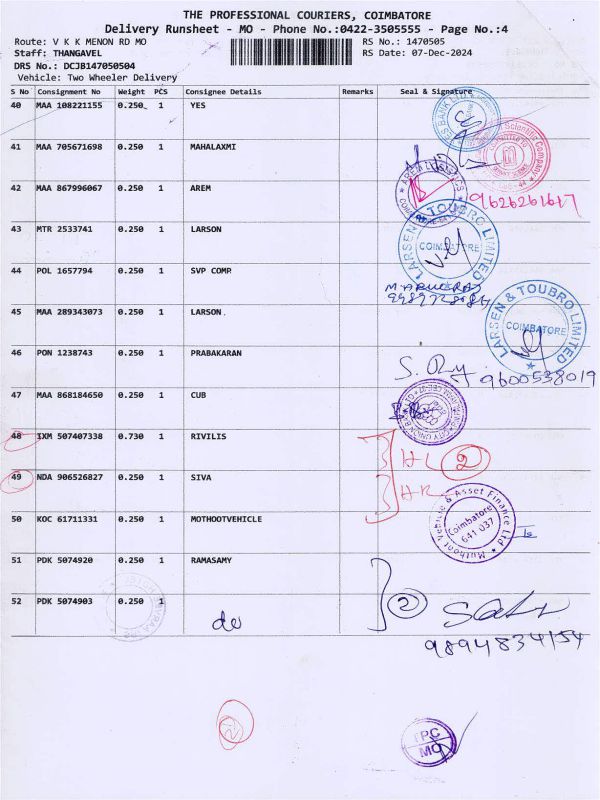 THE PROFESSIONAL COURIERS, COIMBATORE
Delivery Runsheet - MO - Phone No.:0422-3505555 - Page No.:4
Route: V K K MENON RD MO RS No.: 1470505
Staff: THANGAVEL RS Date: 07-Dec-2024
DRS No.: DCJB147050504
Vehicle: Two Wheeler Delivery
S No Consignment No Weight PCS Consignee Details Remarks Seal & Signature
40 MAA 108221155 0.250 1 YES
S BANK LTD
Scientific Company
41 MAA 705671698 0.250 1 MAHALAXMI
42 MAA 867996067 0.250 1 AREM
9626261617
43 MTR 2533741 0.250 1 LARSON
LARSEN & TOUBRO LIMITED
COIMBATORE
44 POL 1657794 0.250 1 SVP COMP
45 MAA 289343073 0.250 1 LARSON.
LARSEN & TOUBRO LIMITED
COIMBATORE
46 PON 1238743 0.250 1 PRABAKARAN
9600538019
47 MAA 868184650 0.250 1 CUB
CITY UNION BANK
48 IXM 507407338 0.730 1 RIVILIS
HL 2
49 NDA 906526827 0.250 1 SIVA
HR
50 KOC 61711331 0.250 1 MOTHOOTVEHICLE
Muthoot Vehicle & Asset Finance Ltd
Coimbatore
641 037
51 PDK 5074920 0.250 1 RAMASAMY
52 PDK 5074903 0.250 1
do
2
9894834154
TPC
MO